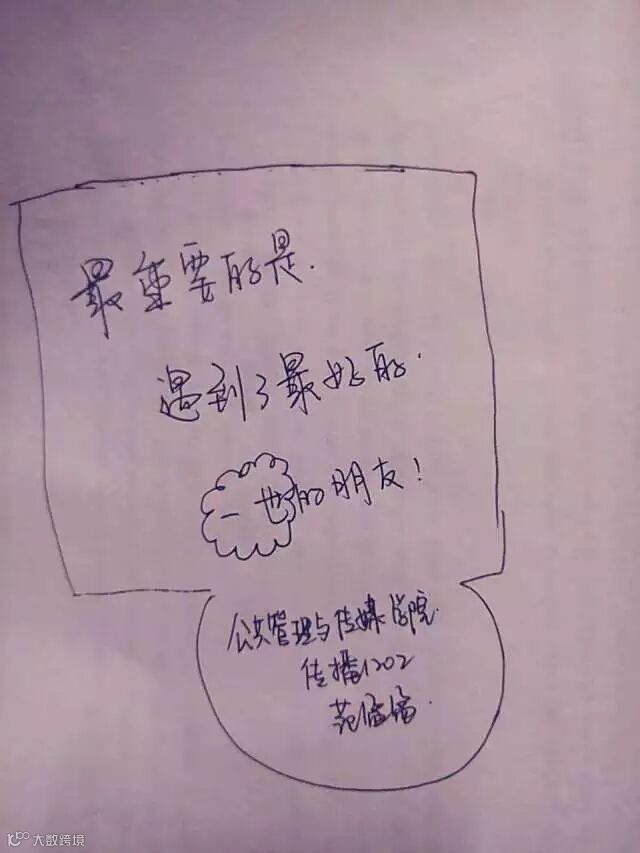 最重要的是.
遇到了最好的.
一世的朋友！
公共管理与传媒学院.
传播1202
范
大数跨境